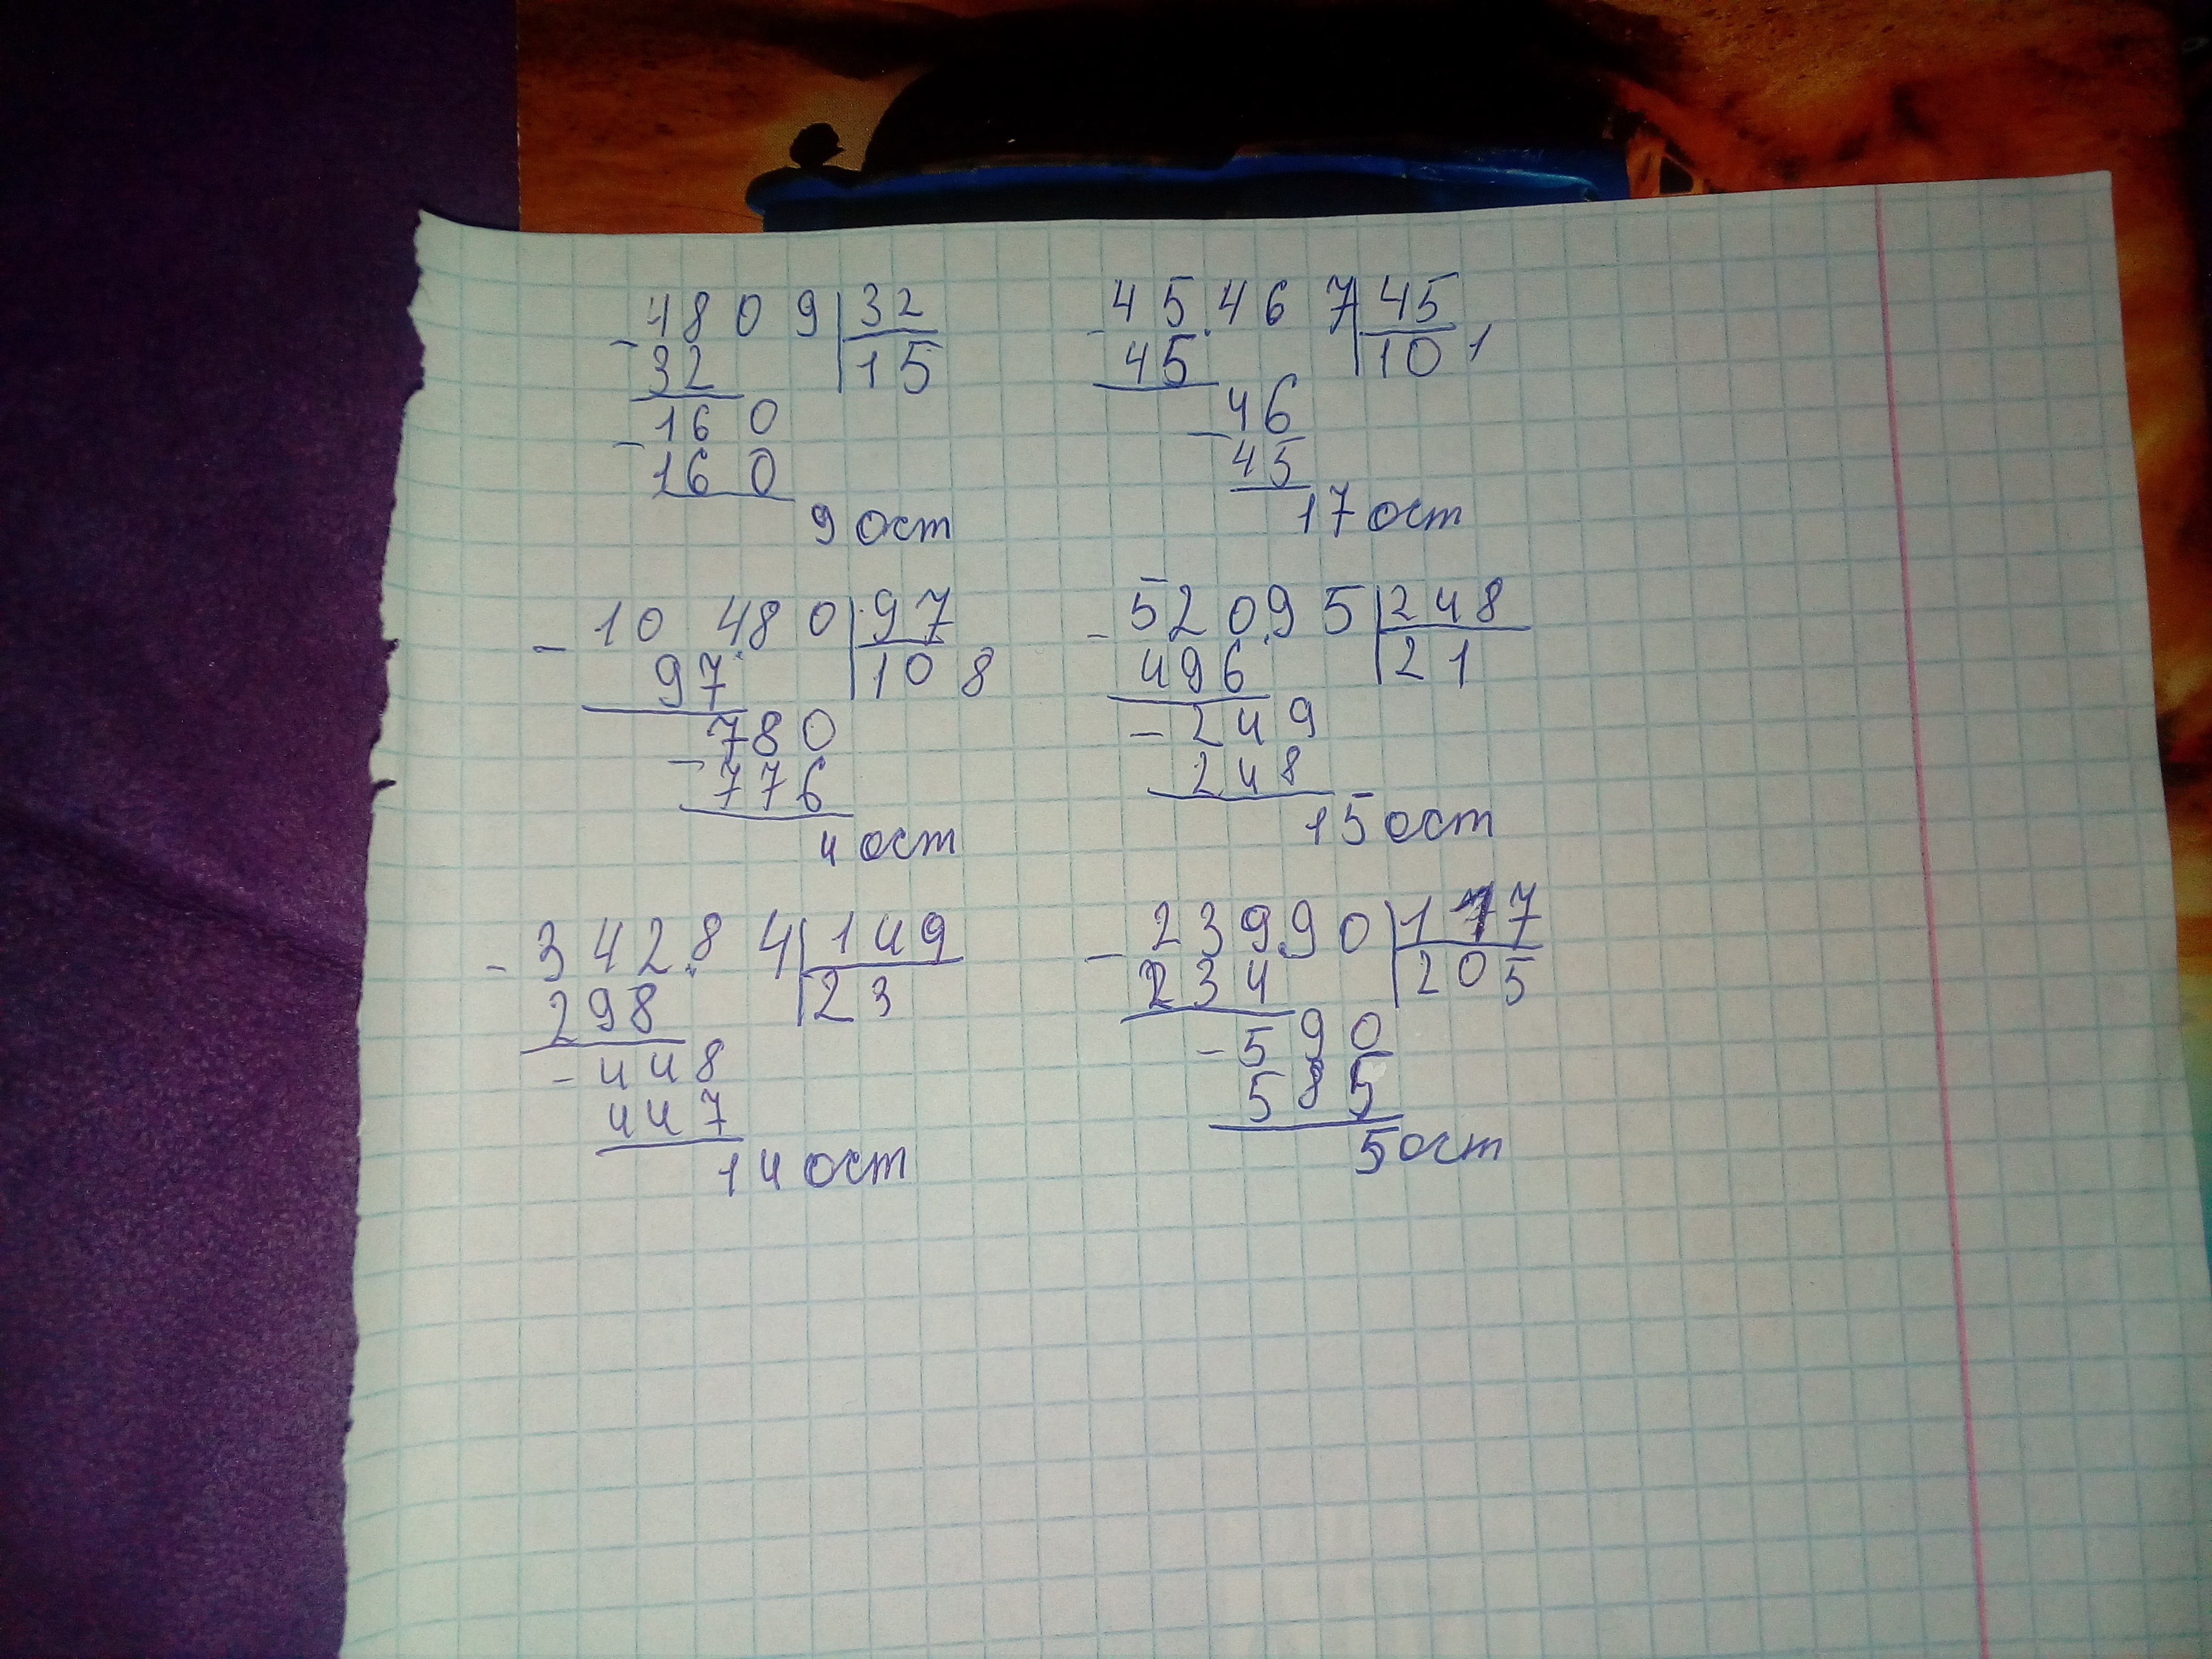 4809 32
32 15
160
160
9 ост
45467 45
45 101
46
45
17 ост
10480 97
97 108
780
776
4 ост
52095 248
496 21
249
248
15 ост
34284 149
298 23
448
447
14 ост
23990 117
234 205
590
585
5 ост